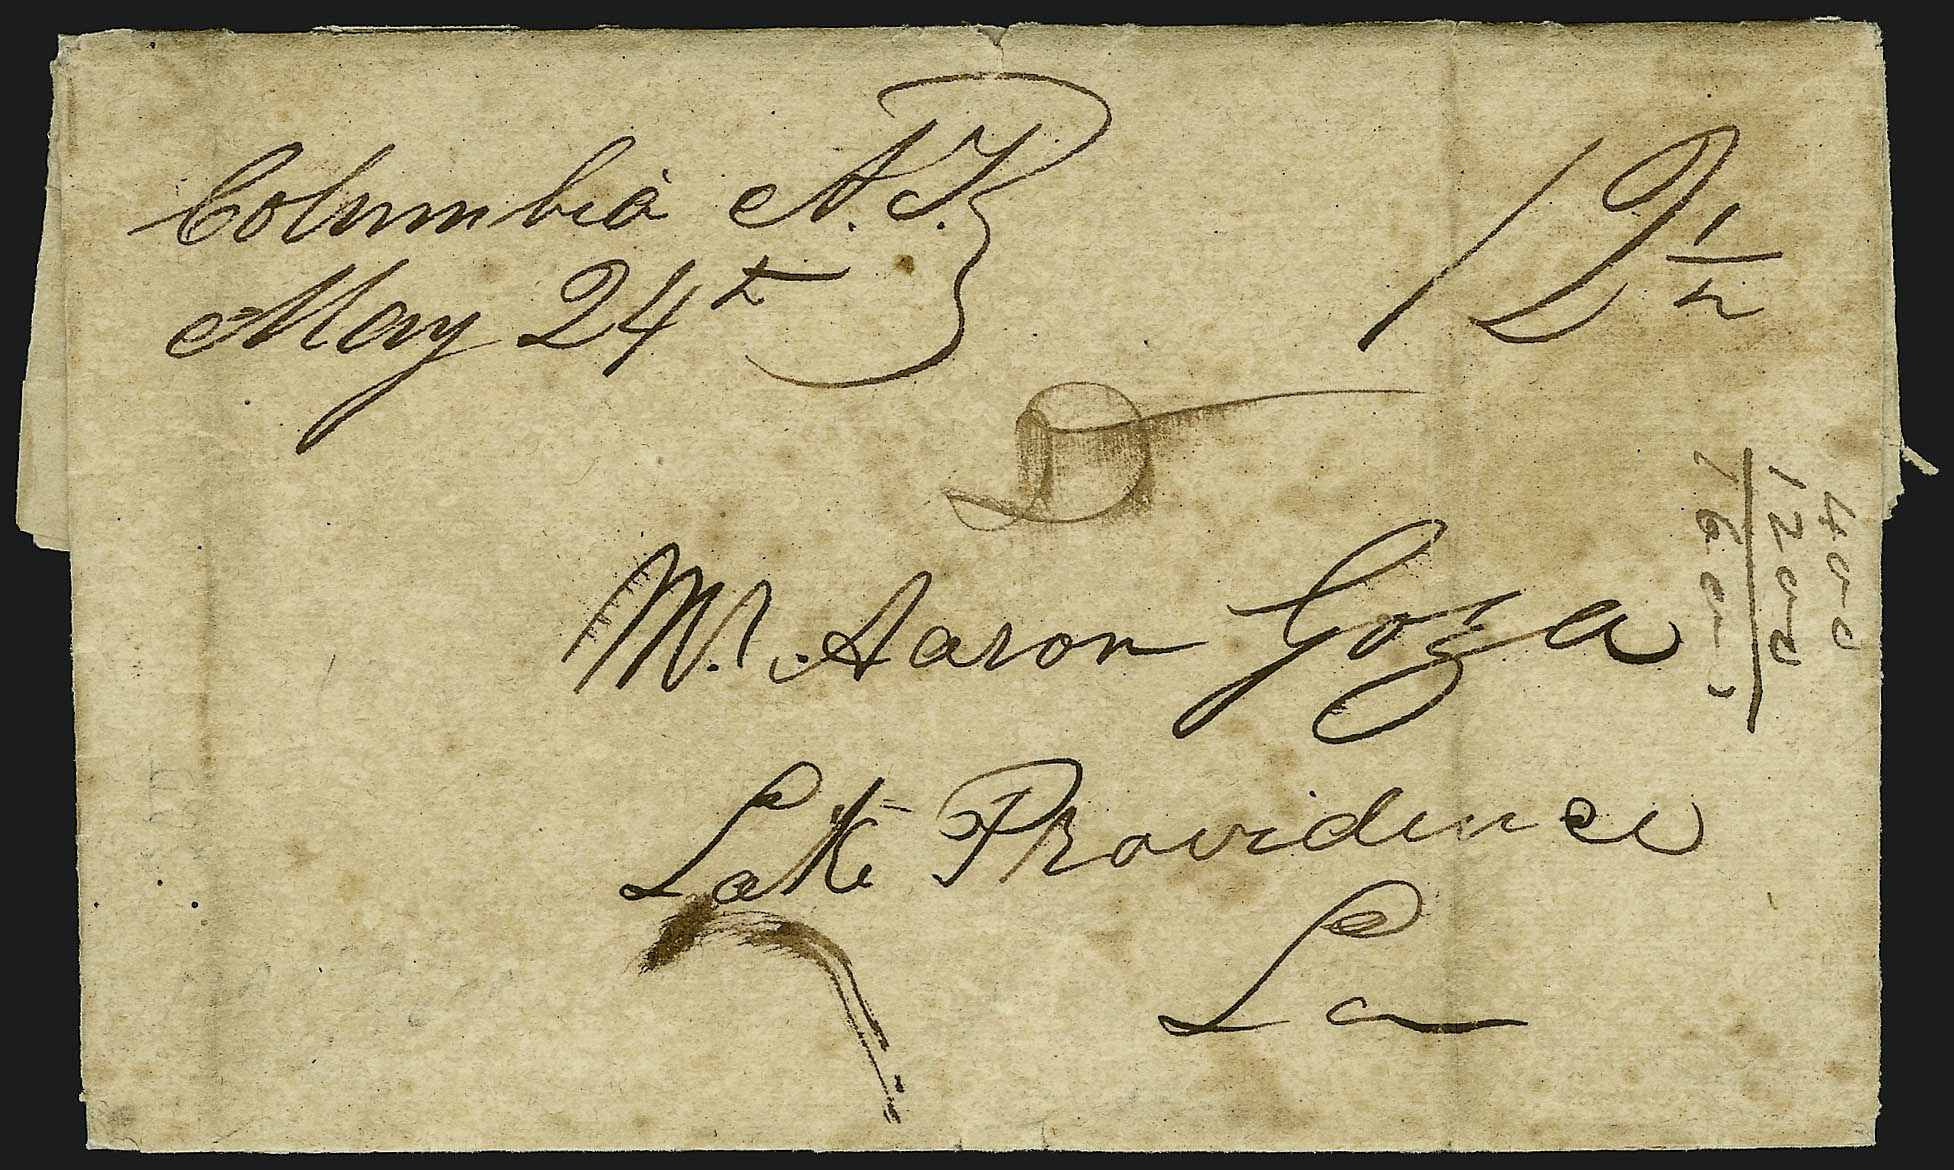 Columbia A.T.
May 24th
12 1/2
Mr. Aaron Goza
Lake Providence
La